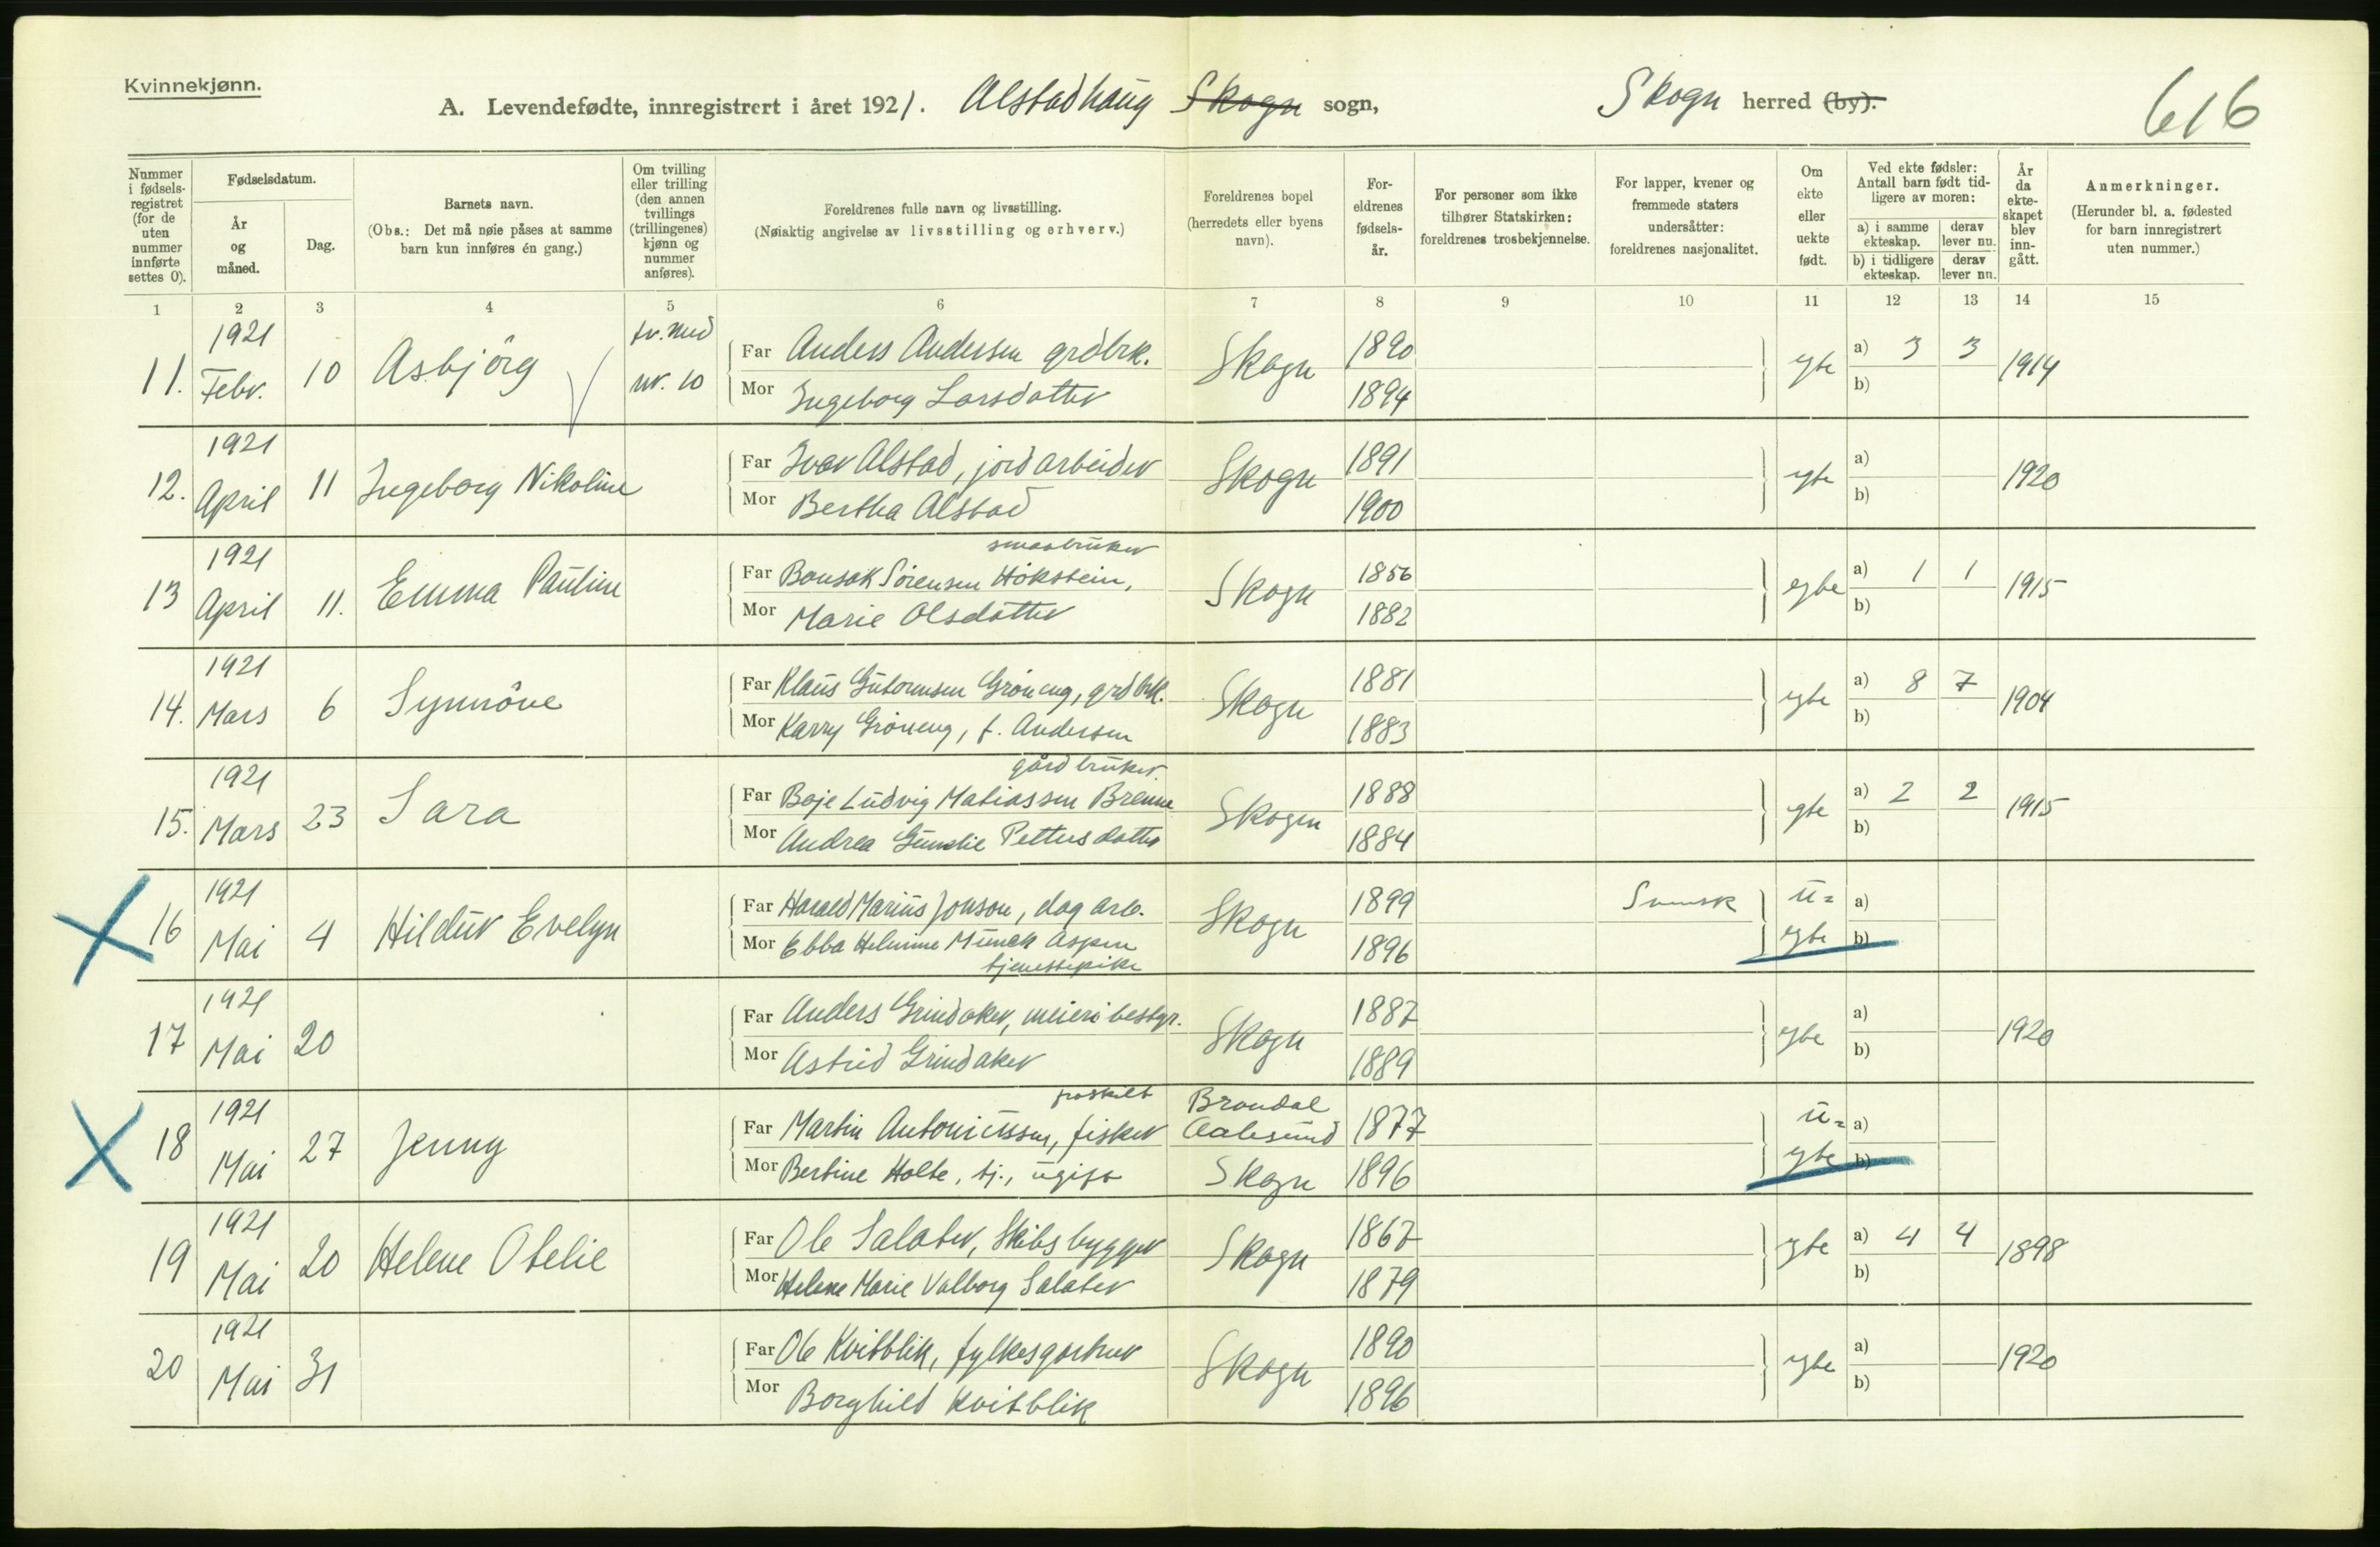 Kvinnekjønn.
A. Levendefødte, innregistrert i året 1921. Alstadhaug Skogn sogn, Skogn herred (by).
616
Nummer i fødsels-registret (for de uten nummer innførte settes 0).
Fødselsdatum.
År og måned.
Dag.
Barnets navn.
(Obs.: Det må nøie påses at samme barn kun innføres én gang.)
Om tvilling eller trilling (den annen tvillings (trillingenes) kjønn og nummer anføres).
Foreldrenes fulle navn og livsstilling.
(Nøiaktig angivelse av livsstilling og erhverv.)
Foreldrenes bopel (herredets eller byens navn).
For-eldrenes fødsels-år.
For personer som ikke tilhører Statskirken: foreldrenes trosbekjennelse.
For lapper, kvener og fremmede staters undersåtter: foreldrenes nasjonalitet.
Om ekte eller uekte født.
Ved ekte fødsler: Antall barn født tid-ligere av moren:
a) i samme ekteskap. derav lever nu.
b) i tidligere ekteskap. derav lever nu.
År da ekte-skapet blev inn-gått.
Anmerkninger.
(Herunder bl. a. fødested for barn innregistrert uten nummer.)
1 2 3 4 5 6 7 8 9 10 11 12 13 14 15
1921 tv. med
11. Febr. 10 Asbjörg nr. 10 Far Anders Andersen grdbrk. Skogn 1890 egte a) 3 3 1914
Mor Ingeborg Larsdatter 1894 b)
1921
12. April 11 Ingeborg Nikoline Far Ivar Alstad, jordarbeider Skogn 1891 egte a) 1920
Mor Bertha Alstad 1900 b)
1921 smaabruker
13 April 11. Emma Pauline Far Bonsak Sörensen Hökstein, Skogn 1856 egte a) 1 1 1915
Mor Marie Olsdatter 1882 b)
1921
14. Mars 6 Synnöve Far Klaus Gutormsen Gröneng, grdbrk. Skogn 1881 egte a) 8 7 1904
Mor Karry Gröneng, f. Andersen 1883 b)
1921 gårdbruker.
15. Mars 23 Sara Far Boje Ludvig Matiassen Brenne Skogn 1888 egte a) 2 2 1915
Mor Andrea Petters datter 1884 b)
1921
16 Mai 4 Hildur Evelyn Far Harald Marius Jonson, dag arb. Skogn 1899 Svensk u= a)
Mor Ebba Helmine Munck Aspen 1896 egte b)
tjenestepike
1921
17 Mai 20 Far Anders Grindaker, meieribestyr. Skogn 1887 egte a) 1920
Mor Astrid Grindaker 1889 b)
1921 fraskilt
18 Mai 27 Jenny Far Martin Antoniussen, fisker Brandal Aalesund 1877 u= a)
Mor Bertine Holte, tj., ugift Skogn 1896 egte b)
1921
19 Mai 20 Helene Otelie Far Ole Salater, Skibsbygger Skogn 1867 egte a) 4 4 1898
Mor Helene Marie Valborg Salater 1879 b)
1921
20 Mai 31 Far Ole Kvitblik, fylkesgartner Skogn 1890 egte a) 1920
Mor Borghild Kvitblik 1896 b)